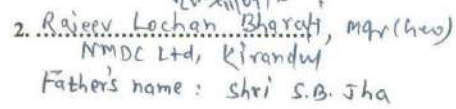 2. Rajeev Lochan Bharati, Mgr (Geo)
NMDC Ltd, Kirandul
Father's name : Shri S.B. Jha